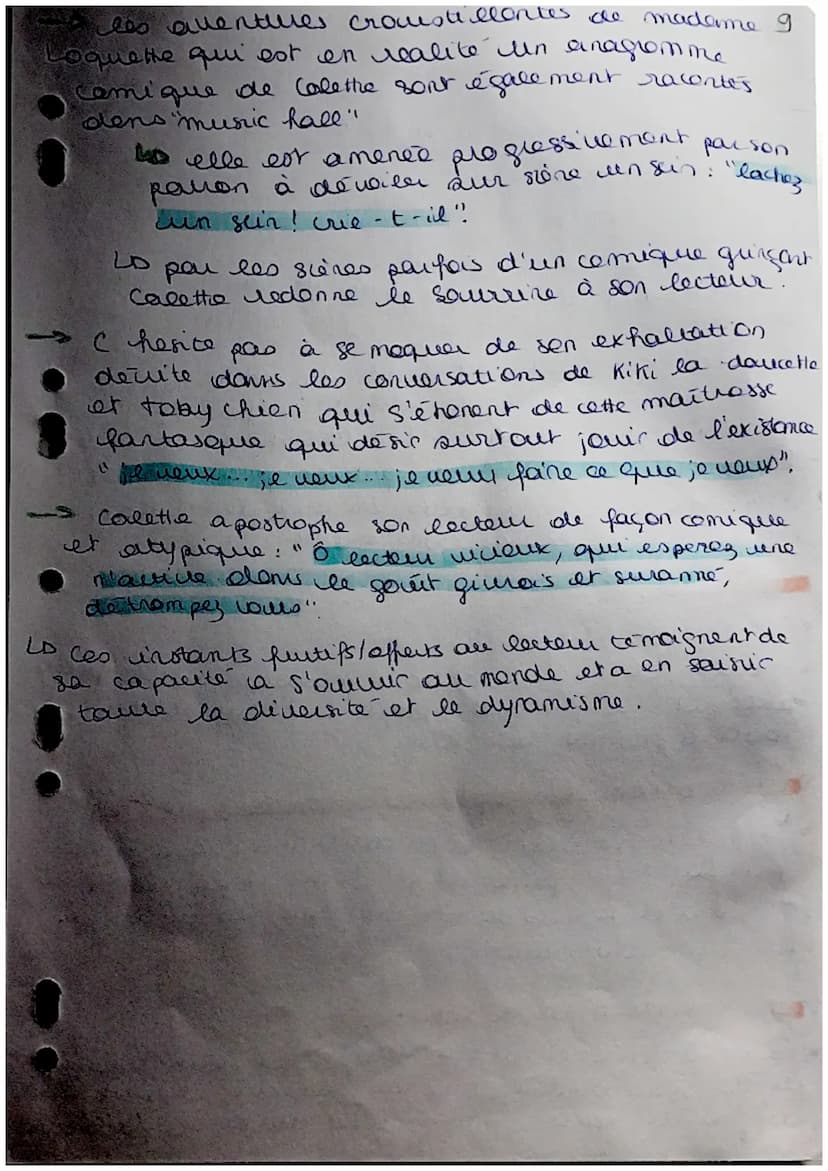 → les aventures croustillantes de madame 9
Loquette qui est en realité un anagramme
comique de Colette sont également racontés
dans "music hall"
↳ elle est amenée progressivement par son
patron à dévoiler sur scène un sein : "lachez
un sein ! crie-t-il".
↳ par les scènes parfois d'un comique grinçant
Colette redonne le sourrire à son lecteur.
→ C hesite pas à se moquer de son exhaltation
décrite dans les conversations de Kiki la doucette
et toby chien qui s'étonent de cette maîtresse
fantasque qui désir surtout jouir de l'existence
"je veux... je veux... je veux faire ce que je veux".
→ Colette apostrophe son lecteur de façon comique
et atypique : "Ô lecteur vicieux, qui esperez une
dans le goût et suranné,
détrompez vous".
↳ Ces instants furtifs/offerts au lecteur témoignent de
sa capacité a s'ouvrir au monde et a en saisir
toute la diversité et le dynamisme.